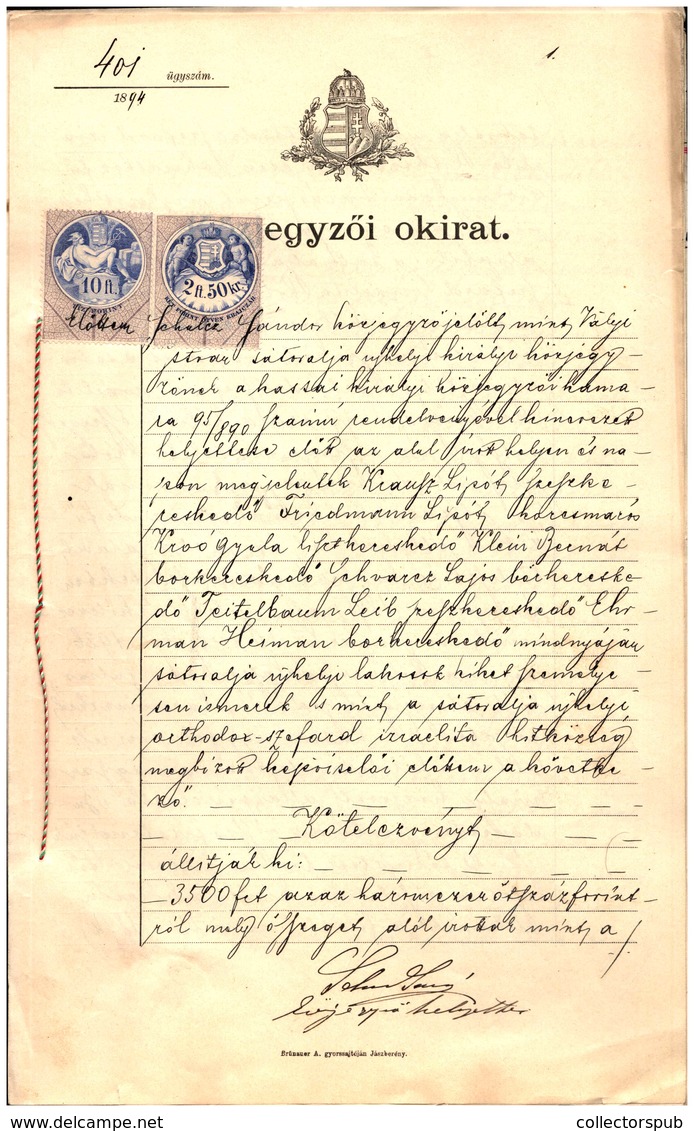 401 ügyszám.
1894
1.
egyzői okirat.
10 ft.
2 ft. 50 kr.
Előttem Schulcz Sándor közjegyzőjelölt mint Vályi
István sátoralja ujhelyi királyi közjegy-
zőnek a kassai királyi közjegyzői kama-
ra 95/890 számú rendelvényével kinevezett
helyettese előtt az alul írott helyen és na-
pon megjelentek Krausz Lipót, szeszke-
reskedő Friedmann Lipót korcsmáros
Kroó Gyula lisztkereskedő Klein Bernát
borkereskedő Schvarcz Lajos bőrkereske-
dő Teitelbaum Leib szeszkereskedő Ehr-
man Heiman borkereskedő mindnyájan
sátoralja újhelyi lakosok kiket személye-
sen ismerek s mint a sátoralja ujhelyi
orthodox-szefard izraelita hitközség
megbizott képviselői előttem a követke-
ző
Kötelezvényt
állítják ki:
3500 ft azaz háromezer ötszáz forint-
ról mely összeget alól írottak mint a /.
közjegyző helyettes
Brünauer A. gyorssajtóján Jászberény.
collectorspub